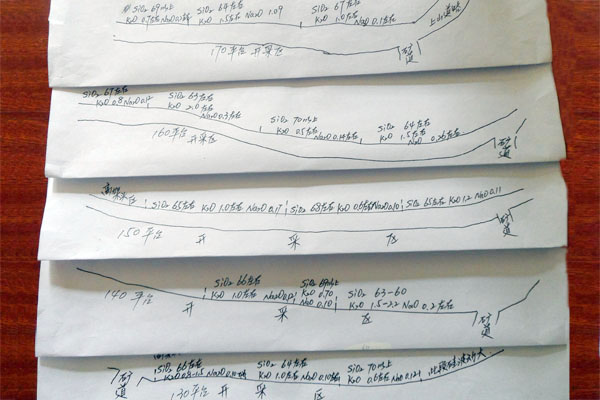 SiO₂ 69以上 SiO₂ 64左右 SiO₂ 67左右
K₂O 0.7左右 K₂O 1.5左右 Na₂O 1.09 K₂O 1.0左右 Na₂O 0.1左右
上山道路
170平台 开采区 矿道
SiO₂ 67左右 SiO₂ 63左右
K₂O 0.8 Na₂O 0.12 K₂O 2.0左右
Na₂O 0.3左右 SiO₂ 70以上 SiO₂ 64左右
K₂O 0.5左右 Na₂O 0.14左右 K₂O 1.5左右
Na₂O 0.26左右
160平台 开采区 矿道
采区
SiO₂ 65左右 K₂O 1.0左右 Na₂O 0.17 SiO₂ 68左右 K₂O 0.6左右 Na₂O 0.10 SiO₂ 65左右 K₂O 1.2 Na₂O 0.11
150平台 开 采 区 矿道
SiO₂ 66左右 SiO₂ 69以上 SiO₂ 63-60
K₂O 1.0左右 Na₂O 0.12 K₂O 0.70 K₂O 1.5-2.2 Na₂O 0.2左右
Na₂O 0.10
140平台 开 采 区 矿道
SiO₂ 66左右 SiO₂ 64左右 SiO₂ 70以上
K₂O 0.8-1.5 Na₂O 0.10 K₂O 1.0左右 Na₂O 0.10左右 K₂O 0.6左右 Na₂O 0.12
矿道 130平台 开 采 区